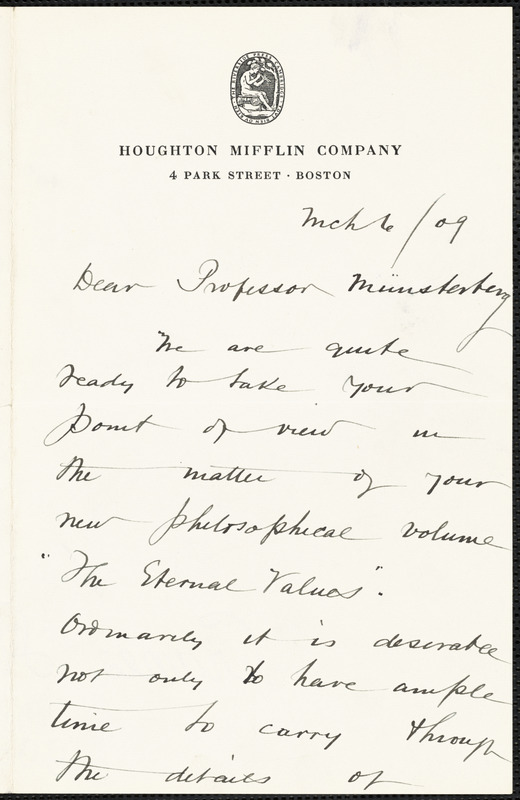 HOUGHTON MIFFLIN COMPANY
4 PARK STREET · BOSTON
Mch 6/09
Dear Professor Münsterberg
We are quite
ready to take your
point of view in
the matter of your
new philosophical volume
"The Eternal Values".
Ordinarily it is desirable
not only to have ample
time to carry through
the details of